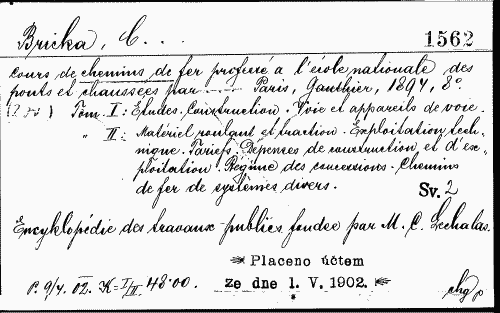 Bricka, C...
1562
Cours de chemins de fer professé à l'école nationale des
ponts et chaussées par —— Paris, Gauthier, 1894, 8°
(2 sv) Tom. I: Etudes. Construction. Voie et appareils de voie.
" II: Matériel roulant et traction. Exploitation tech-
nique. Tarifs. Dépenses de construction et d'ex-
ploitation. Régime des concessions. Chemins
de fer de systèmes divers.
Sv. 2
Encyklopédie des travaux publics fondée par M. C. Lechalas.
Placeno účtem
P. 9/4. 02. K = I/II 48·00.
ze dne 1. V. 1902.